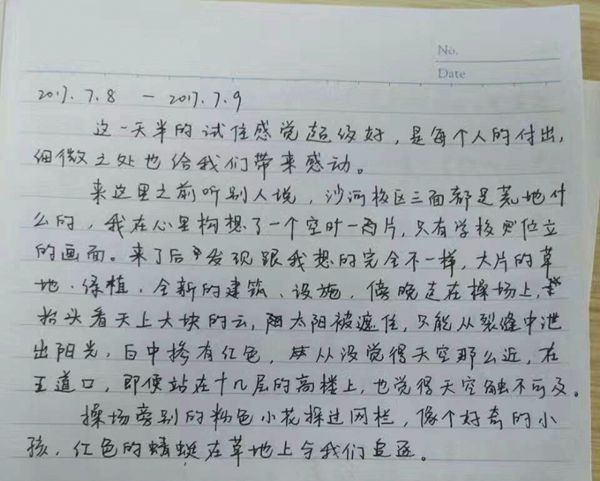 No.
Date
2017.7.8 — 2017.7.9
这一天半的试住感觉超级好,是每个人的付出,
细微之处也给我们带来感动。
来这里之前听别人说,沙河校区三面都是荒地什
么的,我在心里构想了一个空旷一片,只有学校屹立
的画面。来了后发现跟我想的完全不一样,大片的草
地、绿植,全新的建筑、设施,傍晚走在操场上,
抬头看天上大块的云,太阳被遮住,只能从裂缝中泄
出阳光,白中掺有红色,从没觉得天空那么近,在
王道口,即使站在十几层的高楼上,也觉得天空触不可及。
操场旁别的粉色小花探过网栏,像个好奇的小
孩,红色的蜻蜓在草地上与我们追逐。